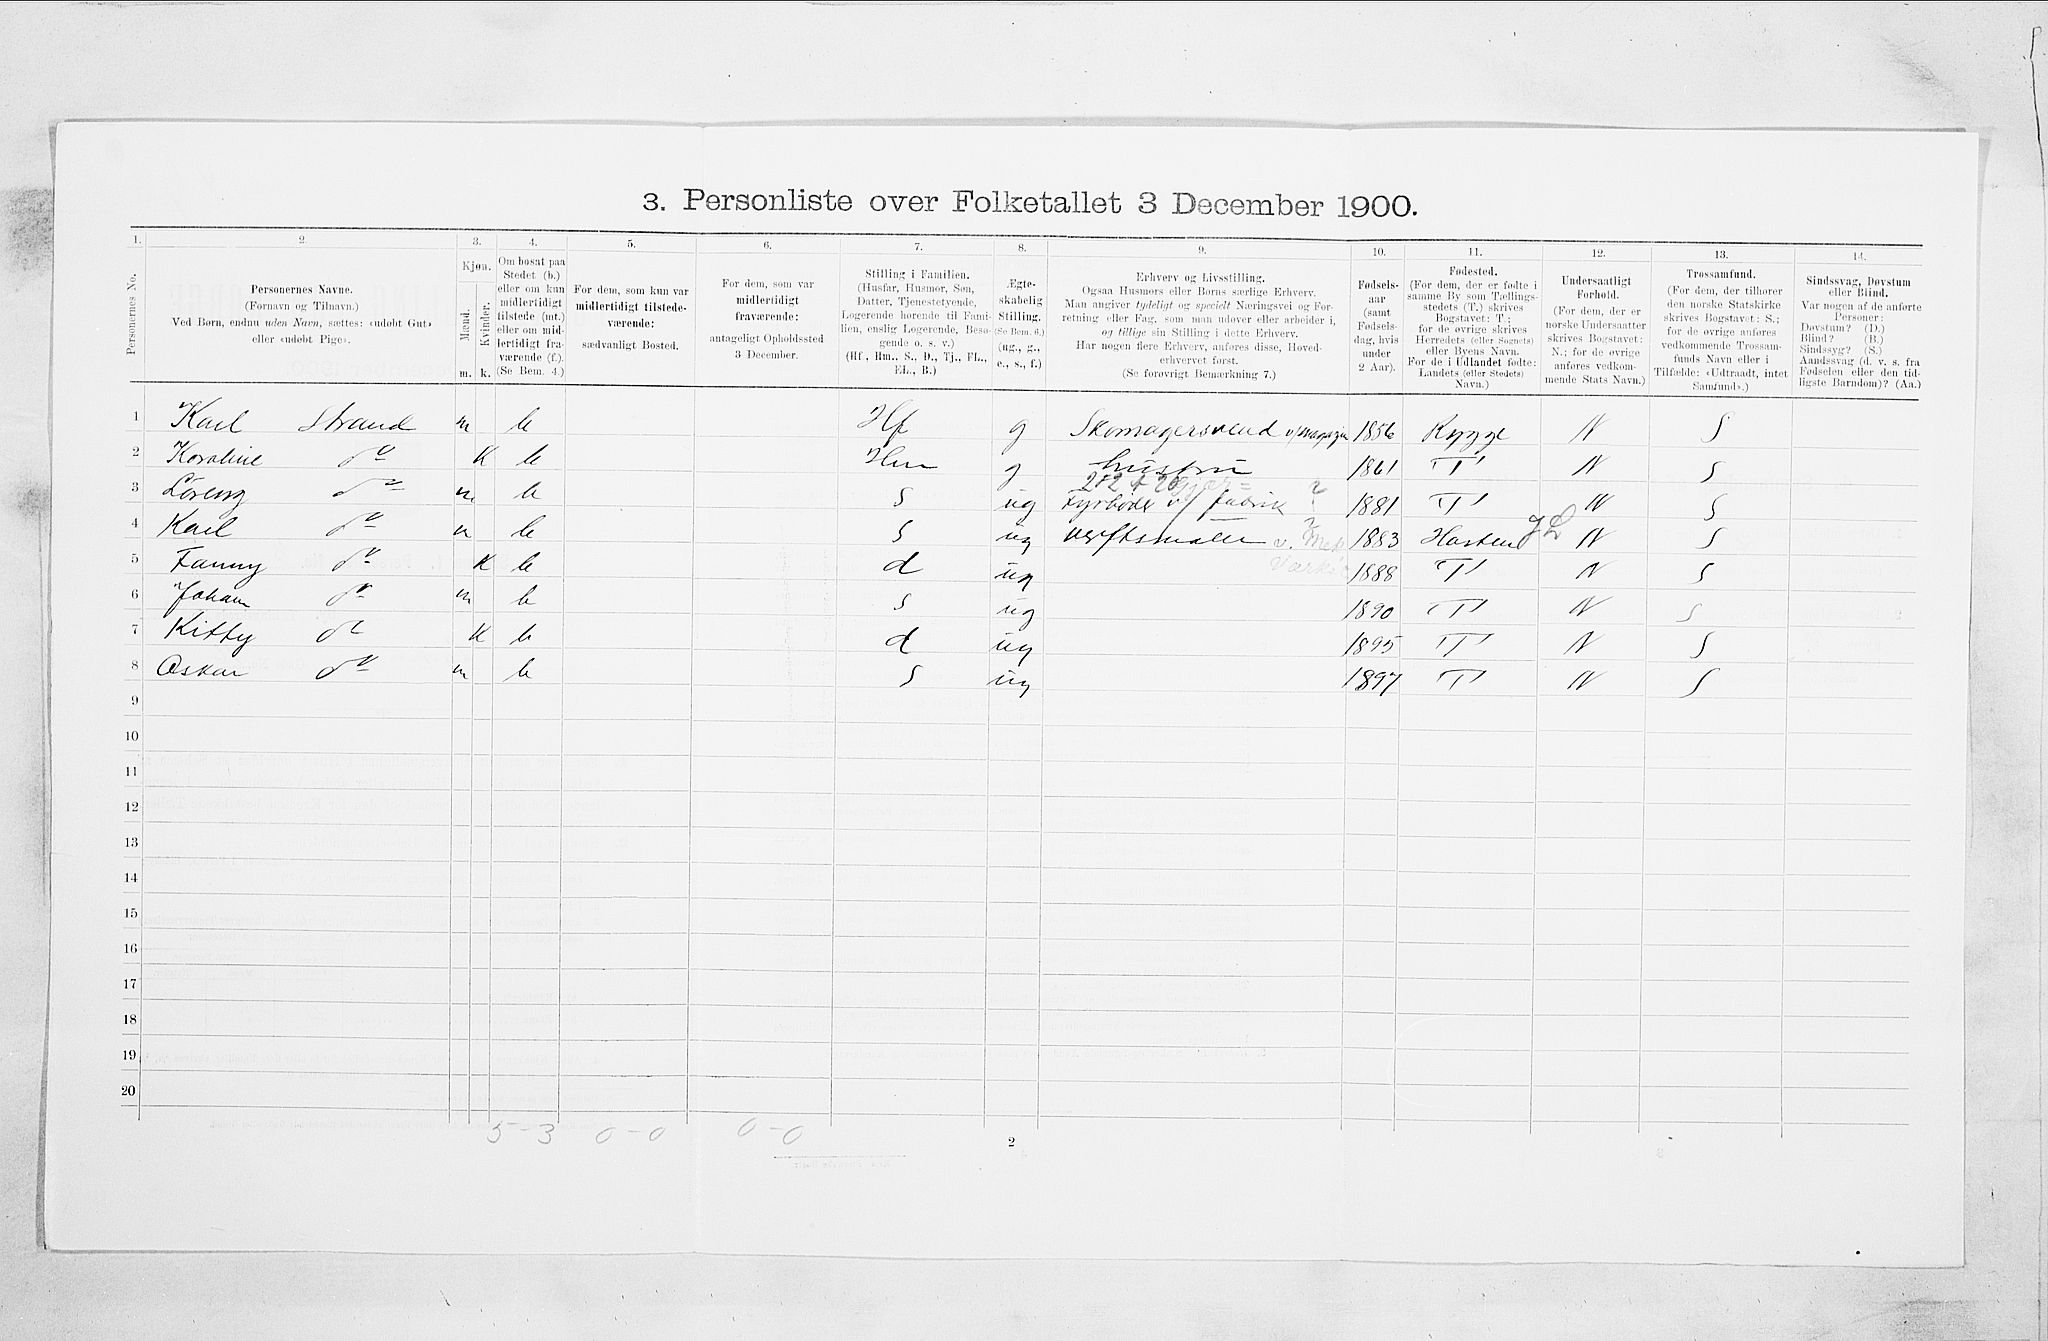 3. Personliste over Folketallet 3 December 1900.
1. 2. 3. 4. 5. 6. 7. 8. 9. 10. 11. 12. 13. 14.
Personernes No.
Personernes Navne.
(Fornavn og Tilnavn.)
Ved Børn, endnu uden Navn, sættes: «udøbt Gut»
eller «udøbt Pige».
Kjøn.
Mænd.
Kvinder.
m. k.
Om bosat paa
Stedet (b.)
eller om kun
midlertidigt
tilstede (mt.)
eller om mid-
lertidigt fra-
værende (f.).
(Se Bem. 4.)
For dem, som kun var
midlertidigt tilstede-
værende:
sædvanligt Bosted.
For dem, som var
midlertidigt
fraværende:
antageligt Opholdssted
3 December.
Stilling i Familien.
(Husfar, Husmor, Søn,
Datter, Tjenestetyende,
Logerende hørende til Fami-
lien, enslig Logerende, Besø-
gende o. s. v.)
(Hf., Hm., S., D., Tj., FL.,
EL., B.)
Ægte-
skabelig
Stilling.
(Se Bem. 6.)
(ug., g.,
e., s., f.)
Erhverv og Livsstilling.
Ogsaa Husmors eller Børns særlige Erhverv.
Man angiver tydeligt og specielt Næringsvei og For-
retning eller Fag, som man udover eller arbeider i,
og tillige sin Stilling i dette Erhverv.
Har nogen flere Erhverv, anføres disse, Hoved-
erhvervet først.
(Se forøvrigt Bemærkning 7.)
Fødsels-
aar
(samt
Fødsels-
dag, hvis
under
2 Aar).
Fødested.
(For dem, der er fødte i
samme By som Tællings-
stedets (T.) skrives
Bogstavet: T.;
for de øvrige skrives
Herredets (eller Sognets)
eller Byens Navn.
For de i Udlandet fødte:
Landets (eller Stedets)
Navn.)
Undersaatligt
Forhold.
(For dem, der er
norske Undersaatter
skrives Bogstavet:
N.; for de øvrige
anføres vedkom-
mende Stats Navn.)
Trossamfund.
(For dem, der tilhører
den norske Statskirke
skrives Bogstavet: S.;
for de øvrige anføres
vedkommende Trossam-
funds Navn eller i
Tilfælde: «Udtraadt, intet
Samfund».)
Sindssvag, Døvstum
eller Blind.
Var nogen af de anførte
Personer:
Døvstum? (D.)
Blind? (B.)
Sindssyg? (S.)
Aandssvag (d. v. s. fra
Fødselen eller den tid-
ligste Barndom)? (Aa.)
1 Karl Strand m b Hf g Skomagersvend v/magazin 1856 Rygge N S
2 Karoline do K b Hm g hustru 1861 T N S
3 Lorens do m b S ug Fyrbøder v/ fabrik ? 1881 T N S
4 Karl do m b S ug 1883 N S
5 Fanny do K b d ug 1888 T N S
6 Johan do m b S ug 1890 T N S
7 Kitty do K b d ug 1895 T N S
8 Oskar do m b S ug 1897 T N S
9
10
11
12
13
14
15
16
17
18
19
20
5-3 0-0 0-0
2